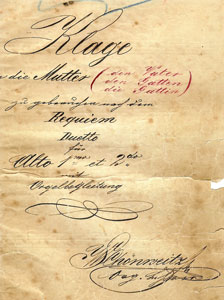 Klage
die Mutter (den Vater
den Gatten
die Gattin)
zu gebrauchen nach dem
Requiem
Duetto
für
Alto 1mo et 2do
mit
Orgelbegleitung